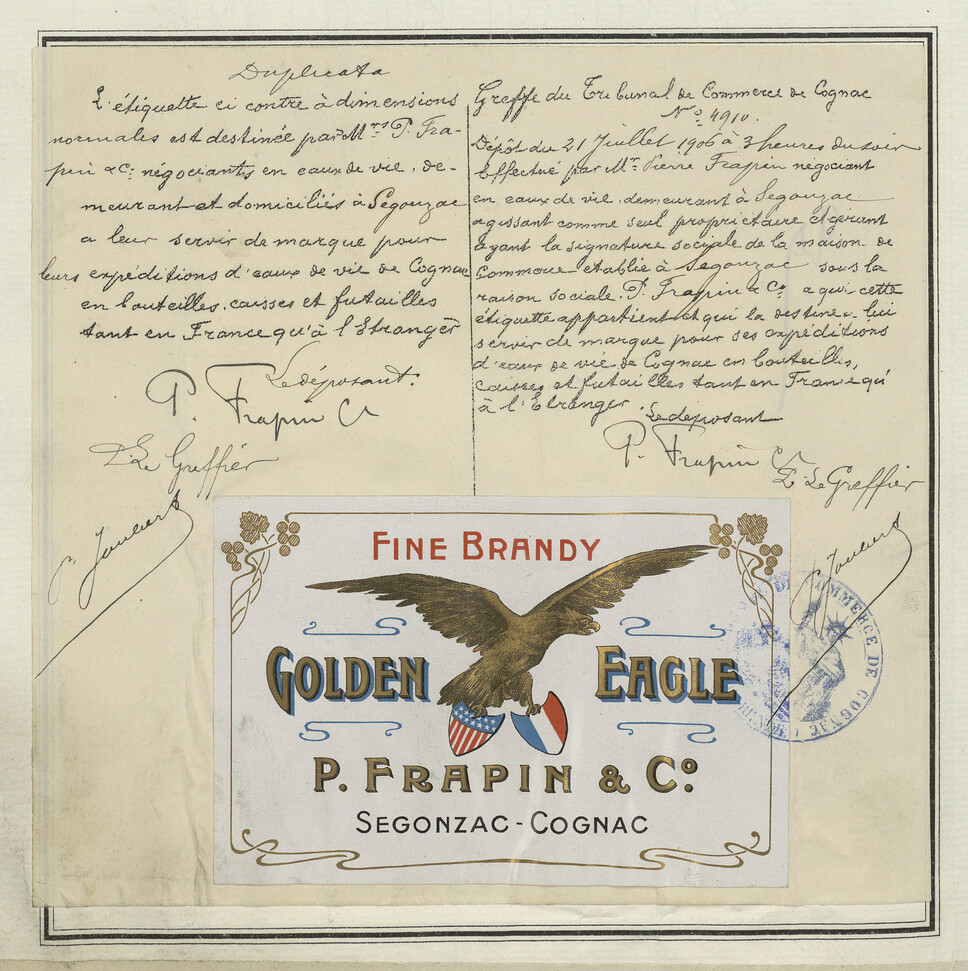 Duplicata
L'étiquette ci contre à dimensions
normales est destinée par Mrs P. Fra-
pin & Cie négociants en eaux de vie, de-
meurant et domiciliés à Segonzac
a leur servir de marque pour
leurs expéditions d'eaux de vie de Cognac
en bouteilles, caisses et futailles
tant en France qu'à l'Etranger
Le déposant.
P. Frapin Co
Le Greffier
Greffe du Tribunal de Commerce de Cognac
No. 4910.
Dépôt du 21 Juillet 1906 à 3 heures du soir
Effectué par Mr Pierre Frapin négociant
en eaux de vie, demeurant à Segonzac
agissant comme seul propriétaire et gérant
ayant la signature sociale de la maison de
Commerce etablie à Segonzac sous la
raison sociale. P. Frapin & Co a qui cette
étiquette appartient et qui la destine a lui
servir de marque pour ses expéditions
d'eaux de vie de Cognac en bouteilles,
caisses et futailles tant en France qu'
à l'Etranger
Le déposant
P. Frapin Co
Le Greffier
FINE BRANDY
GOLDEN EAGLE
P. FRAPIN & Co.
SEGONZAC-COGNAC
COMMERCE DE COGNAC